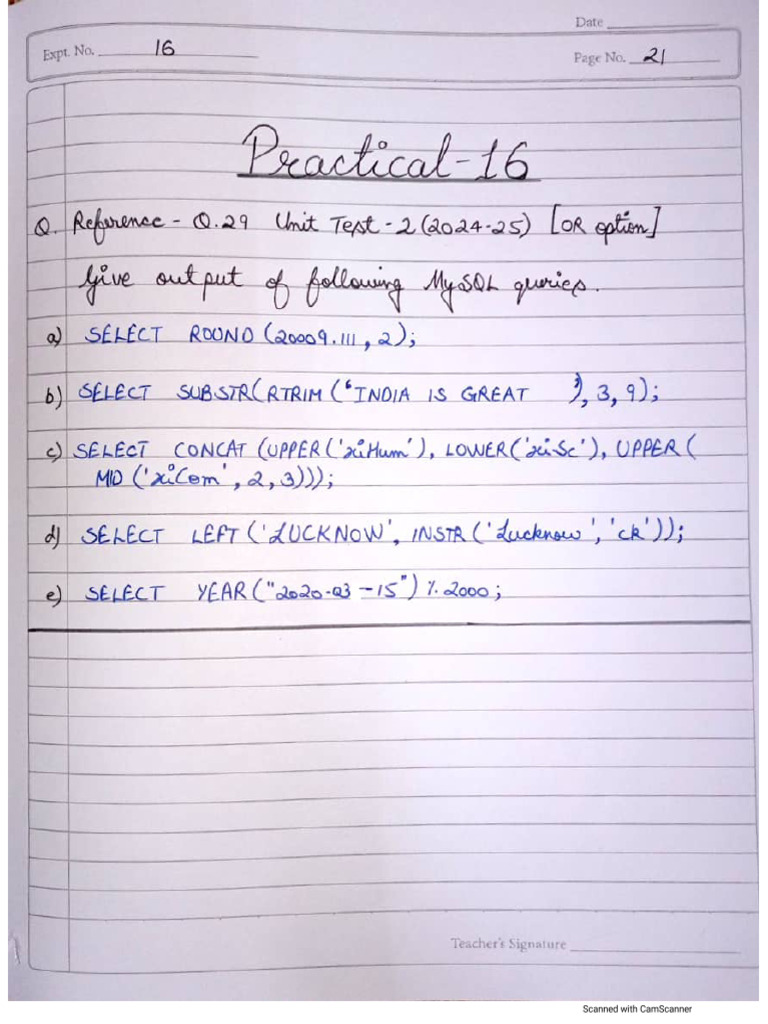 Date
Expt. No. 16
Page No. 21
Practical-16
Q. Reference - Q.29 Unit Test - 2 (2024-25) [OR option]
Give output of following MySQL queries.
a) SELECT ROUND (20009.111, 2);
b) SELECT SUBSTR(RTRIM ('INDIA IS GREAT '), 3, 9);
c) SELECT CONCAT (UPPER('xiHum'), LOWER('xiSc'), UPPER(
MID ('xiCom', 2, 3)));
d) SELECT LEFT ('LUCKNOW', INSTR ('Lucknow', 'ck'));
e) SELECT YEAR ("2020-03-15") % 2000;
Teacher's Signature
Scanned with CamScanner